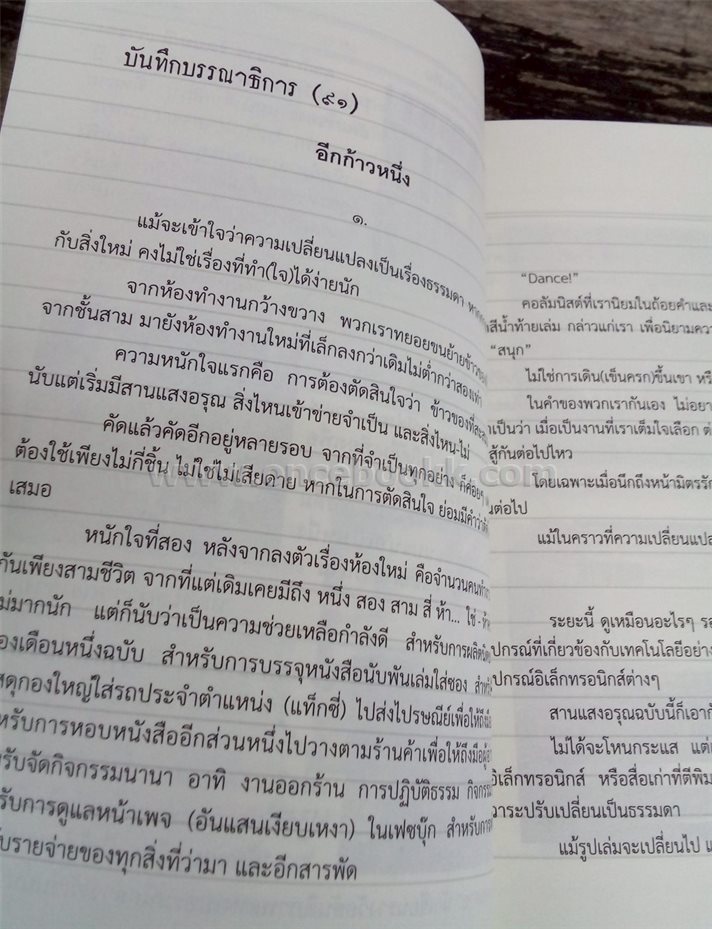 บันทึกบรรณาธิการ (๙๑)
อีกก้าวหนึ่ง
๑.
แม้จะเข้าใจว่าความเปลี่ยนแปลงเป็นเรื่องธรรมดา
กับสิ่งใหม่ คงไม่ใช่เรื่องที่ทำ(ใจ)ได้ง่ายนัก
จากห้องทำงานกว้างขวาง พวกเราทยอยขนย้ายข้าวของ
จากชั้นสาม มายังห้องทำงานใหม่ที่เล็กลงกว่าเดิมไม่ต่ำกว่าสองเท่า
ความหนักใจแรกคือ การต้องตัดสินใจว่า ข้าวของที่สะสม
นับแต่เริ่มมีสานแสงอรุณ สิ่งไหนเข้าข่ายจำเป็น และสิ่งไหน-ไม่
คัดแล้วคัดอีกอยู่หลายรอบ จากที่จำเป็นทุกอย่าง ก็ค่อยๆ
ต้องใช้เพียงไม่กี่ชิ้น ไม่ใช่ไม่เสียดาย หากในการตัดสินใจ ย่อมมีคำว่า
เสมอ
หนักใจที่สอง หลังจากลงตัวเรื่องห้องใหม่ คือจำนวนคนทำงาน
กันเพียงสามชีวิต จากที่แต่เดิมเคยมีถึง หนึ่ง สอง สาม สี่ ห้า... ใช่ - ห้า
ไม่มากนัก แต่ก็นับว่าเป็นความช่วยเหลือกำลังดี สำหรับการผลิต
องเดือนหนึ่งฉบับ สำหรับการบรรจุหนังสือนับพันเล่มใส่ซอง สำหรับ
สดุกองใหญ่ใส่รถประจำตำแหน่ง (แท็กซี่) ไปส่งไปรษณีย์เพื่อให้ถึงมือ
หรับการหอบหนังสืออีกส่วนหนึ่งไปวางตามร้านค้าเพื่อให้ถึงมือผู้อ่าน
รับจัดกิจกรรมนานา อาทิ งานออกร้าน การปฏิบัติธรรม กิจกรรม
รับการดูแลหน้าเพจ (อันแสนเงียบเหงา) ในเฟซบุ๊ก สำหรับการ
บรายจ่ายของทุกสิ่งที่ว่ามา และอีกสารพัด
"Dance!"
คอลัมนิสต์ที่เรานิยมในถ้อยคำและ
สีน้ำท้ายเล่ม กล่าวแก่เรา เพื่อนิยามความ
"สนุก"
ไม่ใช่การเดิน(เข็นครก)ขึ้นเขา หรื
ในคำของพวกเรากันเอง ไม่อยา
เป็นว่า เมื่อเป็นงานที่เราเต็มใจเลือก ต่
สู้กันต่อไปไหว
โดยเฉพาะเมื่อนึกถึงหน้ามิตรรัก
นต่อไป
แม้ในคราวที่ความเปลี่ยนแปล
ระยะนี้ ดูเหมือนอะไรๆ รอ
ปกรณ์ที่เกี่ยวข้องกับเทคโนโลยีอย่าง
ปกรณ์อิเล็กทรอนิกส์ต่างๆ
สานแสงอรุณฉบับนี้ก็เอากั
ไม่ได้จะโหนกระแส แต่เ
อิเล็กทรอนิกส์ หรือสื่อเก่าที่ตีพิม
วาระปรับเปลี่ยนเป็นธรรมดา
แม้รูปเล่มจะเปลี่ยนไป แ